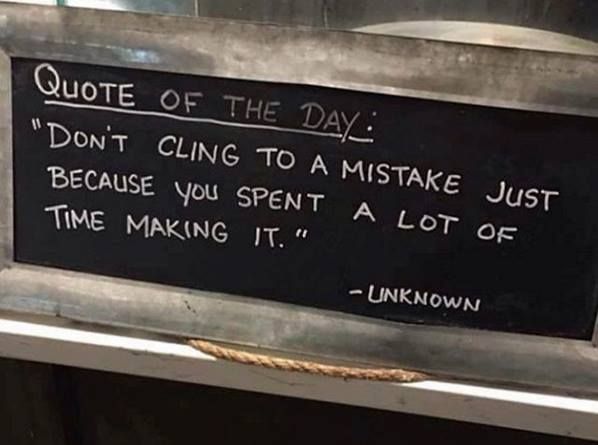 QUOTE OF THE DAY:
"DON'T CLING TO A MISTAKE JUST
BECAUSE YOU SPENT A LOT OF
TIME MAKING IT."
- UNKNOWN